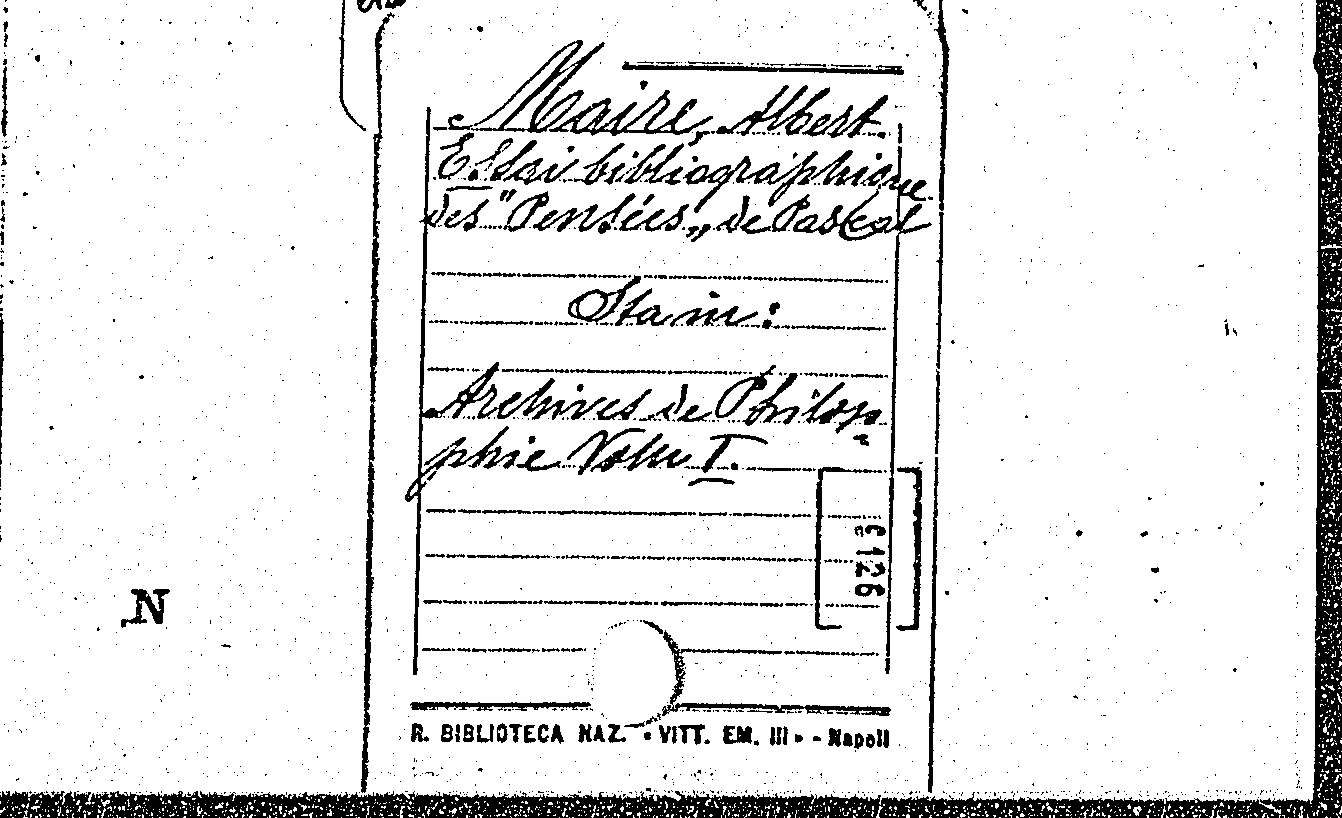 Maire, Albert.
Essai bibliographique
des "Pensées„ de Pascal
Sta in:
Archives de Philoso
phie Vol. I.
€ 126
N
R. BIBLIOTECA NAZ. «VITT. EM. III» - Napoli